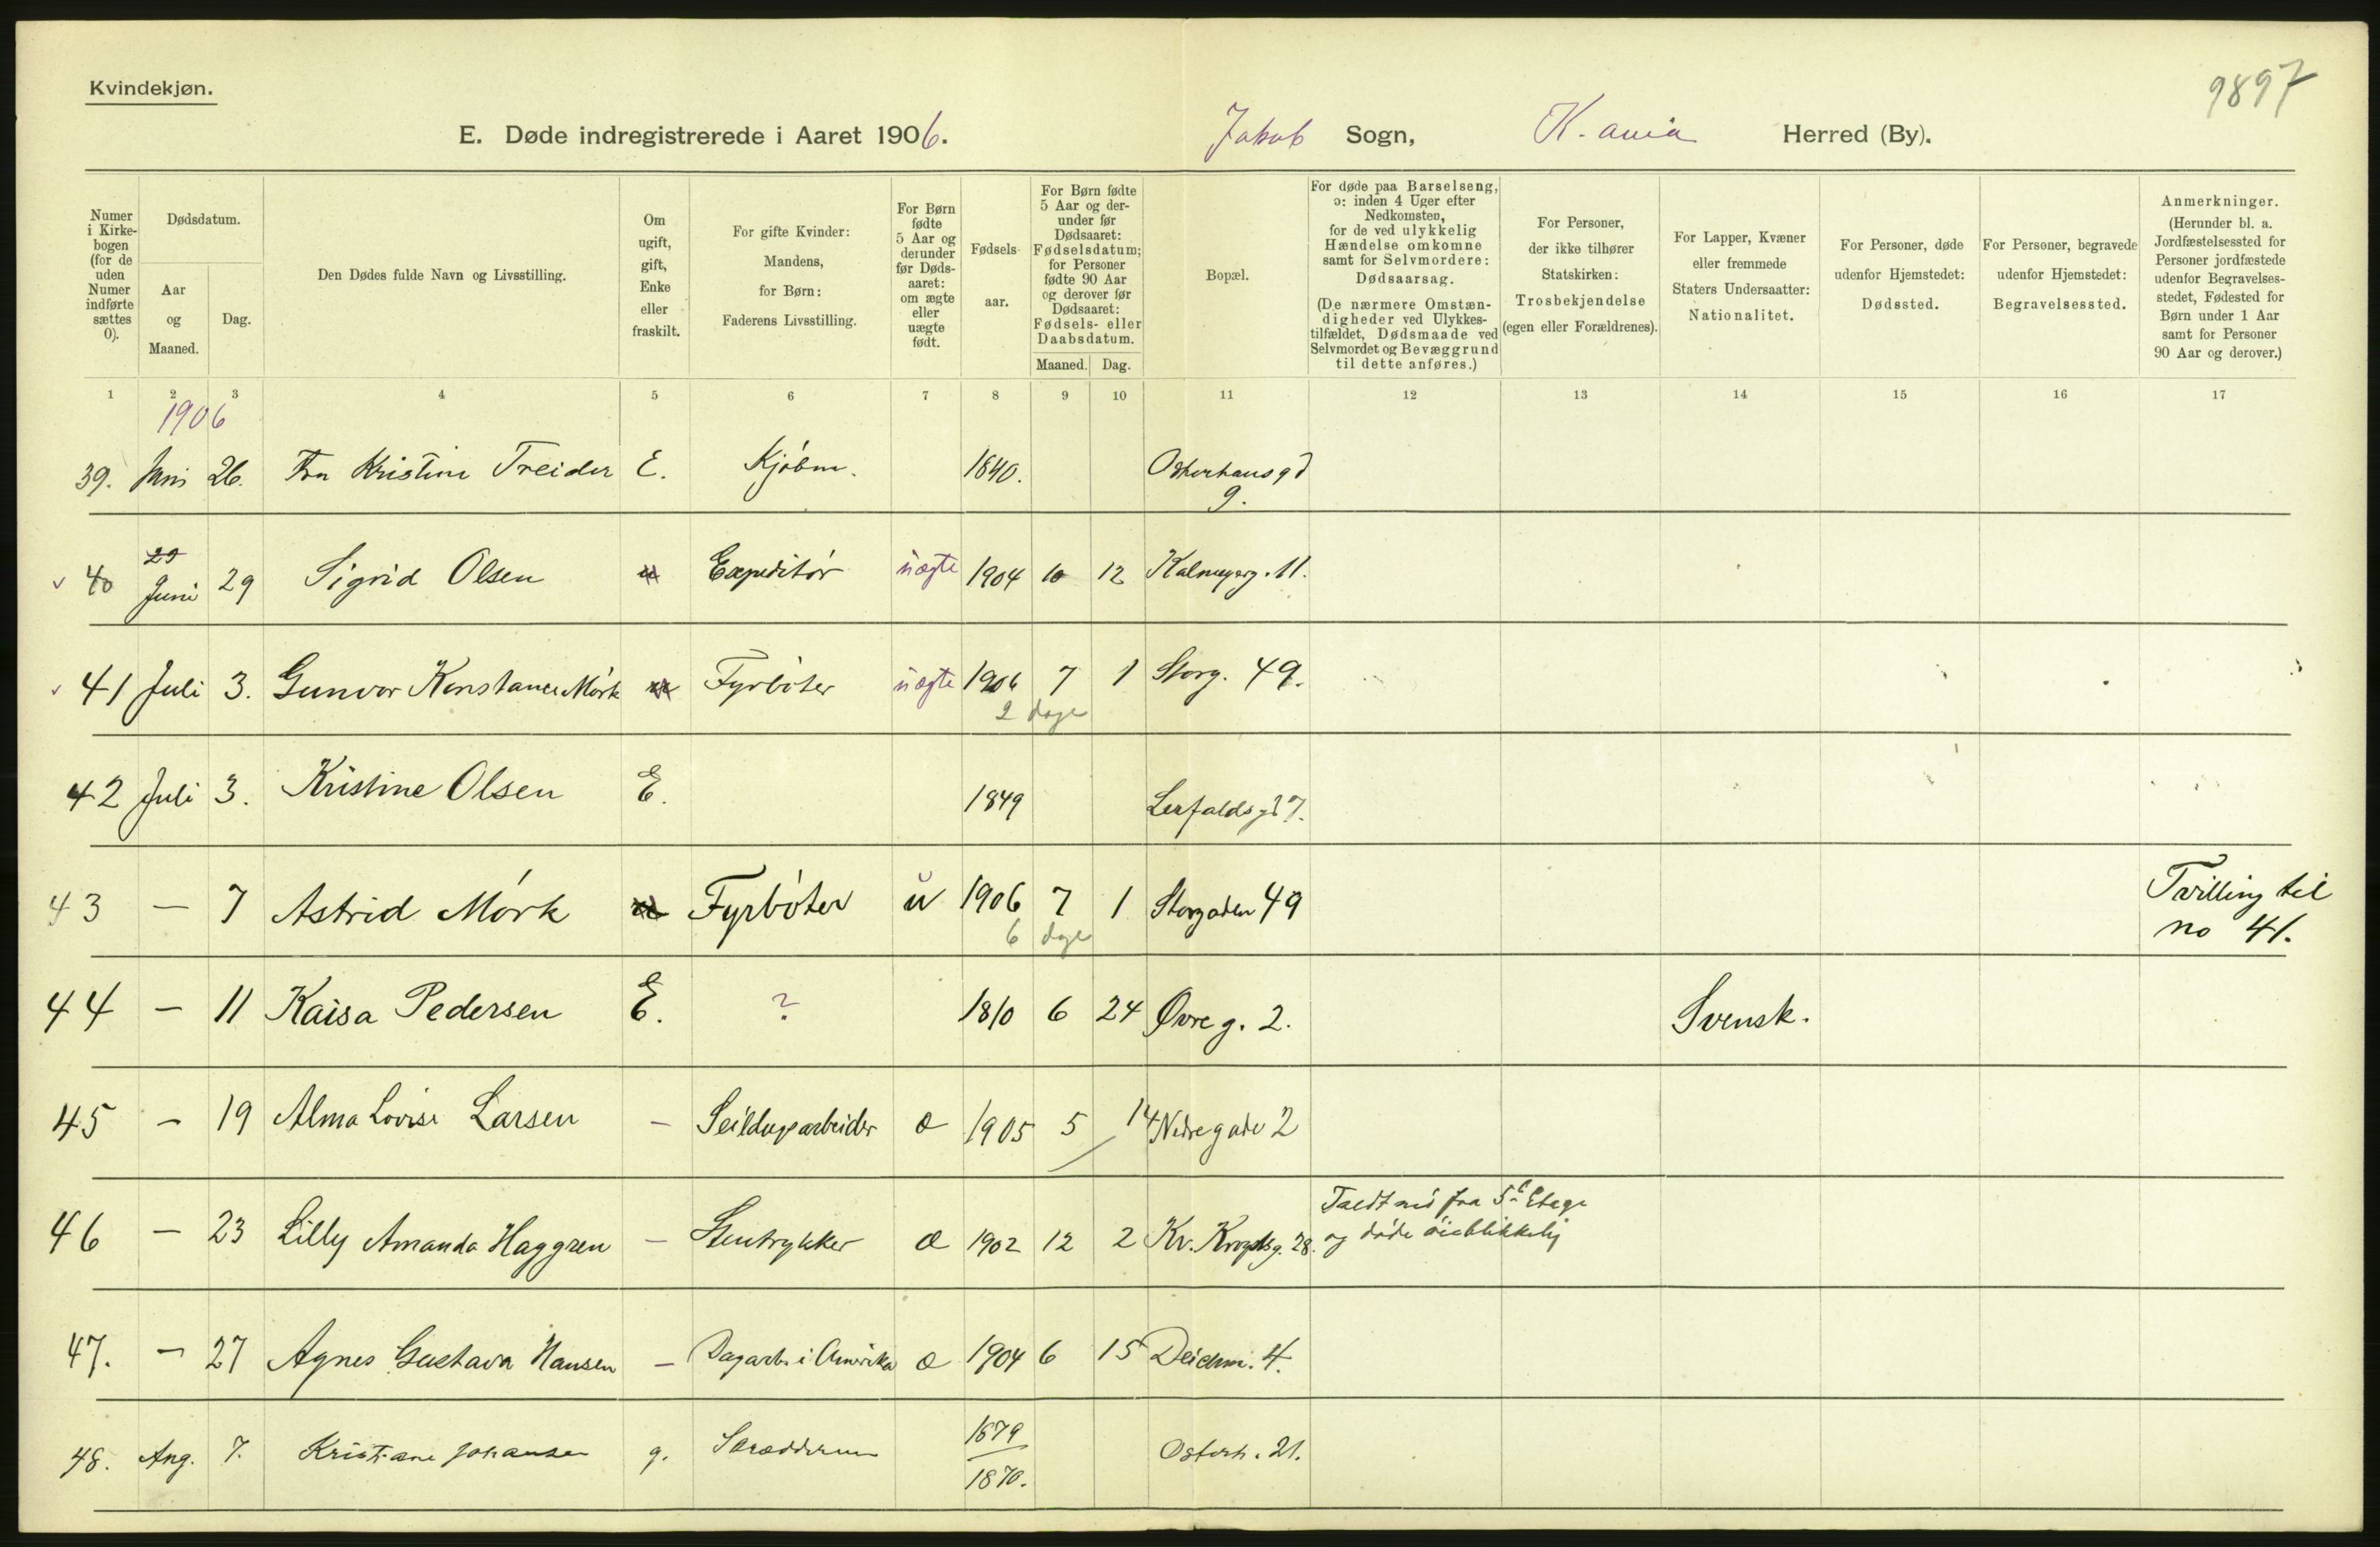 Kvindekjøn.
9897
E. Døde indregistrerede i Aaret 1906. Jakob Sogn, K.ania Herred (By).
Numer i Kirke-bogen (for de uden Numer indførte sættes 0).
Dødsdatum.
Aar og Maaned.
Dag.
Den Dødes fulde Navn og Livsstilling.
Om ugift, gift, Enke eller fraskilt.
For gifte Kvinder: Mandens, for Børn: Faderens Livsstilling.
For Børn fødte 5 Aar og derunder før Døds-aaret: om ægte eller uægte født.
Fødsels-aar.
For Børn fødte 5 Aar og der-under før Dødsaaret: Fødselsdatum; for Personer fødte 90 Aar og derover før Dødsaaret: Fødsels- eller Daabsdatum.
Maaned. Dag.
Bopæl.
For døde paa Barselseng, ɔ: inden 4 Uger efter Nedkomsten, for de ved ulykkelig Hændelse omkomne samt for Selvmordere: Dødsaarsag. (De nærmere Omstæn-digheder ved Ulykkes-tilfældet, Dødsmaade ved Selvmordet og Bevæggrund til dette anføres.)
For Personer, der ikke tilhører Statskirken: Trosbekjendelse (egen eller Forældrenes).
For Lapper, Kvæner eller fremmede Staters Undersaatter: Nationalitet.
For Personer, døde udenfor Hjemstedet: Dødssted.
For Personer, begravede udenfor Hjemstedet: Begravelsessted.
Anmerkninger. (Herunder bl. a. Jordfæstelsessted for Personer jordfæstede udenfor Begravelses-stedet, Fødested for Børn under 1 Aar samt for Personer 90 Aar og derover.)
1 2 3 4 5 6 7 8 9 10 11 12 13 14 15 16 17
1906
39. Juni 26. Fru Kristine Treider E. Kjøbm. 1840. Osterhausgd 9.
29
40 Juni 29 Sigrid Olsen u Expeditór uægte 1904 10 12 Kalmeyerg. 11.
41 Juli 3. Gunvor Konstance Mórk u Fyrbóter uægte 1906 7 1 Storg. 49.
2 dage
42 Juli 3. Kristine Olsen E. 1849 Lerfaldsgd 7.
43 — 7 Astrid Mórk u Fyrbóter u 1906 7 1 Storgaden 49 Tvilling til no 41.
6 dage
44 — 11 Kaisa Pedersen E. ? 1810 6 24 Øvre g. 2. Svensk.
45 — 19 Alma Lovise Larsen — Seildugsarbeider æ 1905 5 14 Nedregade 2
46 — 23 Lilly Amanda Haggren — Stentrykker æ 1902 12 2 Kv. Krogdsg. 28. Faldt ned fra 5te Etage og døde óieblikkelig
47. — 27 Agnes Gustava Hansen — Dagarb. i Amerika æ 1904 6 15 Deichm. 4.
48. Aug. 7. Kristiane Johansen g. Skræddersv. 1879 1870. Osterh. 21.